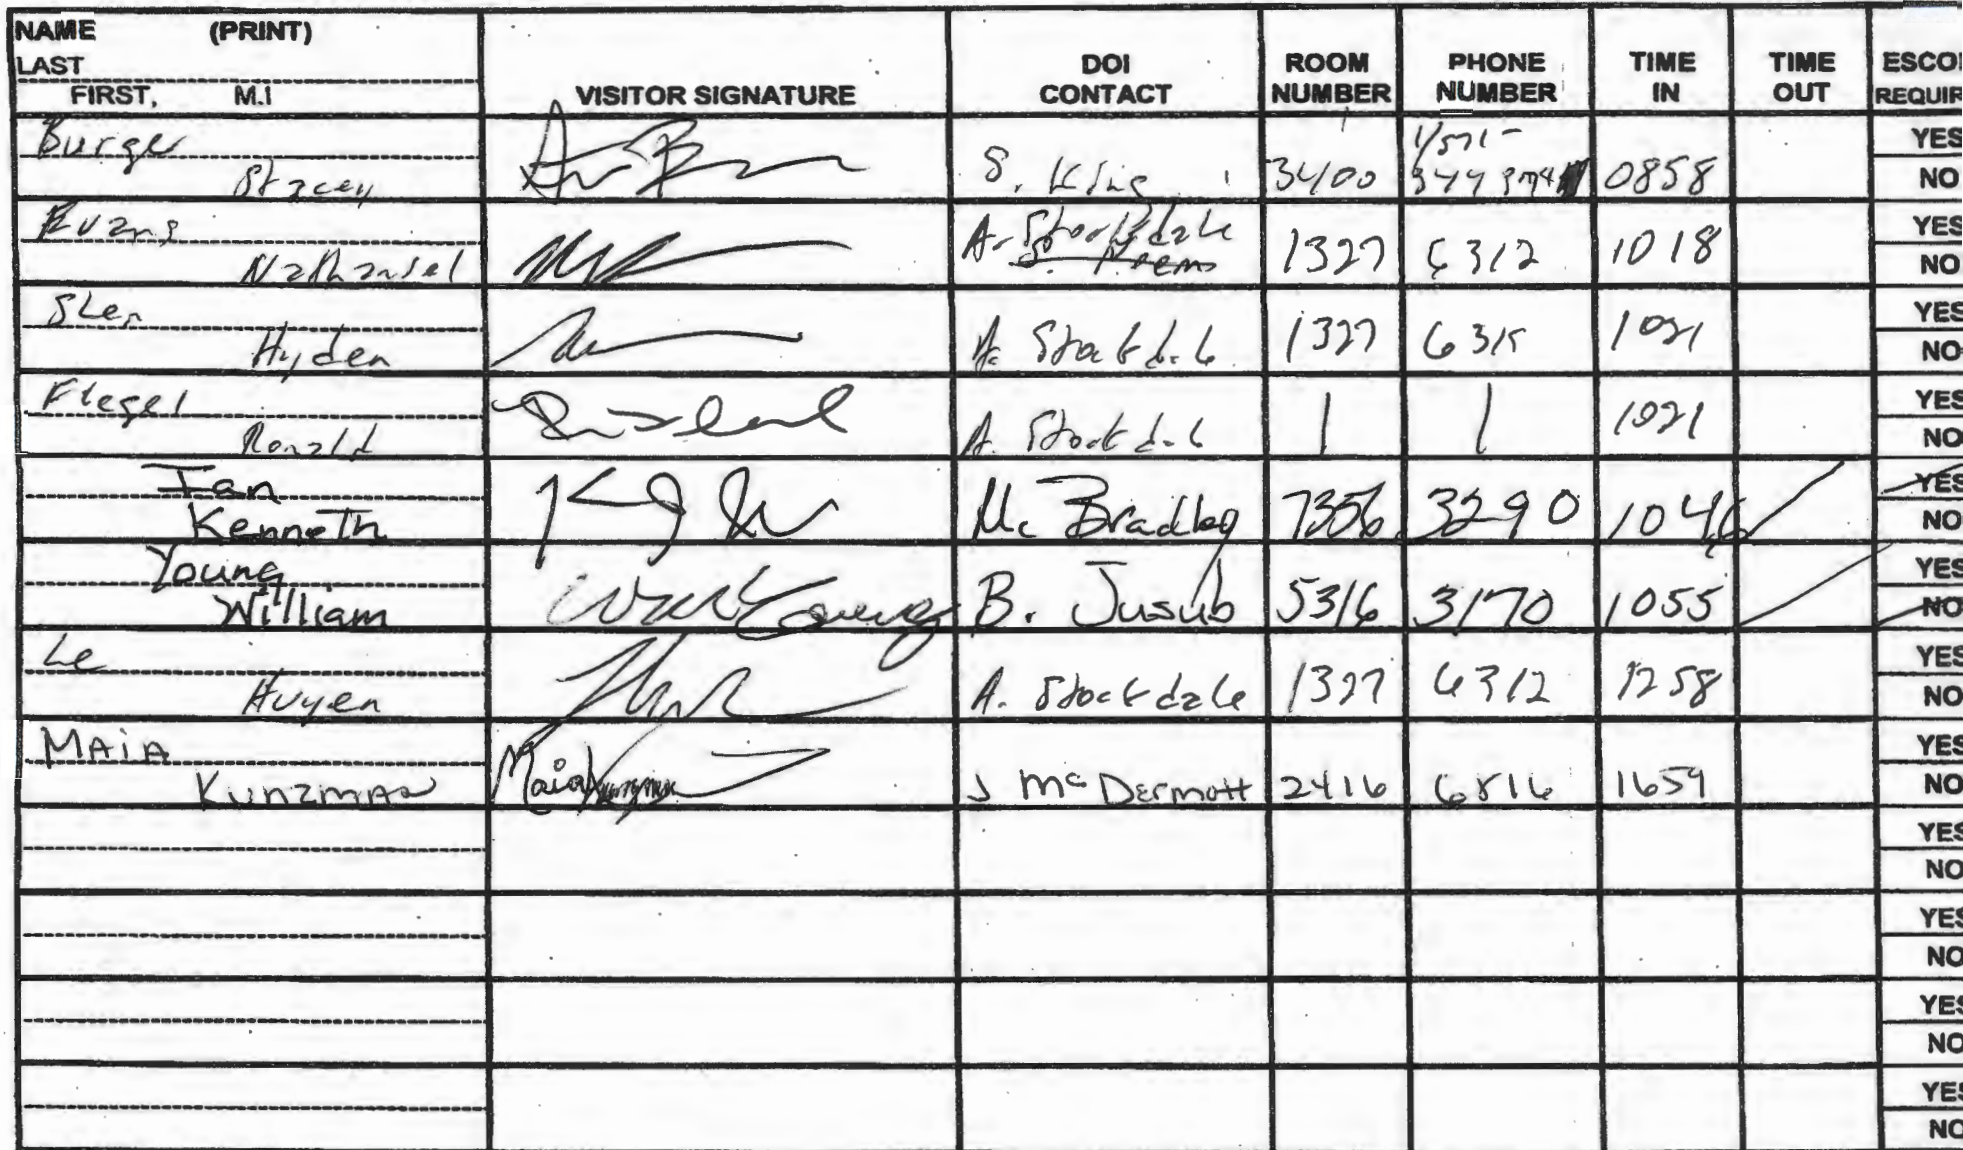 NAME (PRINT)
LAST
FIRST, M.I
VISITOR SIGNATURE
DOI CONTACT
ROOM NUMBER
PHONE NUMBER
TIME IN
TIME OUT
Burger
Stacey
S. King 3400 0858
YES
NO
Evans
Nathansel
A. Stockdale
1327 6312 1018
YES
NO
Hyden
A. Stockdale 1327 1021
YES
NO
Flegel
Ronald
A. Stockdale | | 1021
YES
NO
Ian
Kenneth
Mc Bradley 7356 3290 1046
YES
NO
Young
William
B. Jusub 5316 3170 1055
YES
NO
Le
Huyen
A. Stockdale 1327 6312 1258
YES
NO
MAIA
Kunzman
Maia Kunzman
J McDermott 2416 6816 1659
YES
NO
YES
NO
YES
NO
YES
NO
YES
NO